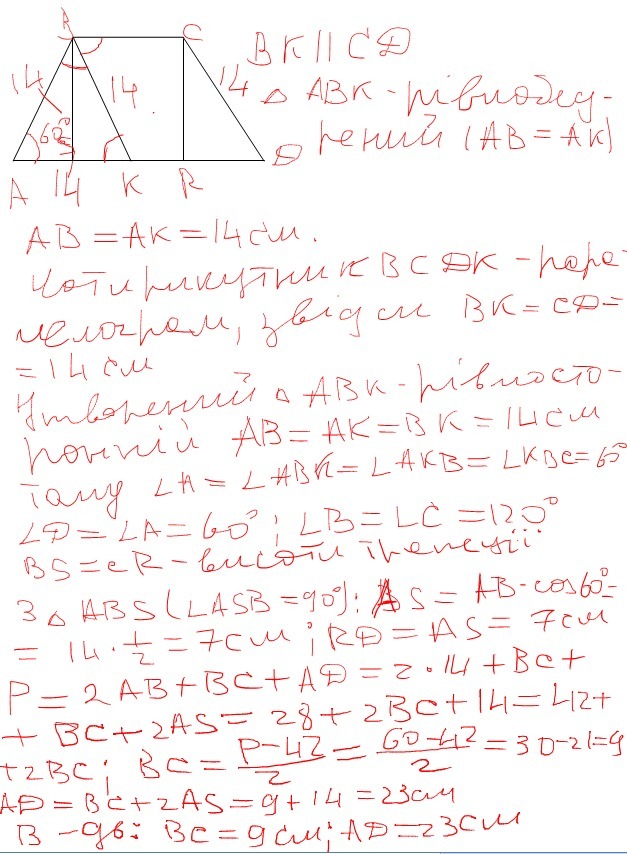 B C
BK || CD
14 14 14
△ ABK - рівнобед-
60°
рений (AB = AK)
D
A 14 K R
AB = AK = 14 см.
Чотирикутник BCDK - пара-
лелограм, звідси BK = CD =
= 14 см
Утворений △ ABK - рівносто-
ронній AB = AK = BK = 14 см
тому ∠A = ∠ABK = ∠AKB = ∠KBC = 60°
∠D = ∠A = 60°; ∠B = ∠C = 120°
BS = CR - висоти трапеції
З △ ABS (∠ASB = 90°): AS = AB · cos 60° =
= 14 · 1/2 = 7 см; RD = AS = 7 см
P = 2AB + BC + AD = 2 · 14 + BC +
+ BC + 2AS = 28 + 2BC + 14 = 42 +
+ 2BC; BC = (P - 42)/2 = (60 - 42)/2 = 30 - 21 = 9
AD = BC + 2AS = 9 + 14 = 23 см
В - дь: BC = 9 см; AD = 23 см